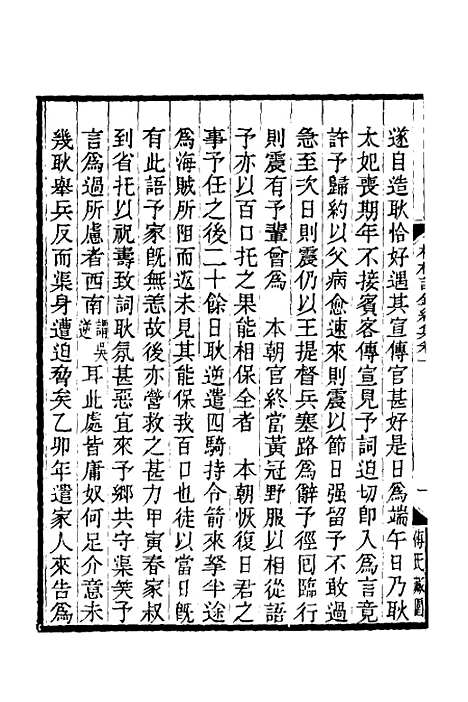 遂自造耿恰好遇其宣傳官甚好是日爲端午日乃耿
太妃喪期年不接賓客傳宣見予詞迫切即入爲言竟
許予歸約以父病愈速來則震以節日强留予不敢過
急至次日則震仍以王提督兵塞路爲辭予徑回臨行
則震有予輩曾爲 本朝官終當黃冠野服以相從語
予亦以百口托之果能相保全者 本朝恢復日君之
事予任之後二十餘日耿逆遣四騎持令箭來拏半途
爲海賊所阻而返未見其能保我百口也徒以當日旣
有此語予家旣無恙故後亦營救之甚力甲寅春家叔
到省托以祝壽致詞耿氛甚惡宜來予鄉共守渠笑予
言爲過所慮者西南謂吳逆耳此處皆庸奴何足介意未
幾耿舉兵反而渠身遭迫脅矣乙卯年遣家人來告爲
一